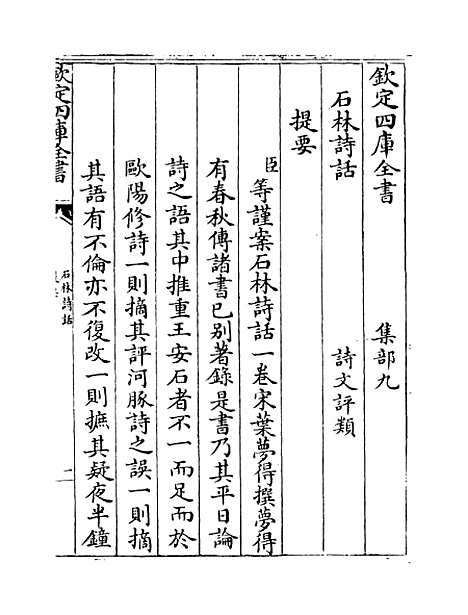 欽定四庫全書　集部九
石林詩話　詩文評類
提要
臣等謹案石林詩話一卷宋葉夢得撰夢得
有春秋傳諸書已别著錄是書乃其平日論
詩之語其中推重王安石者不一而足而於
歐陽修詩一則摘其評河豚詩之誤一則摘
其語有不倫亦不復改一則摭其疑夜半鐘
欽定四庫全書
石林詩話
提要